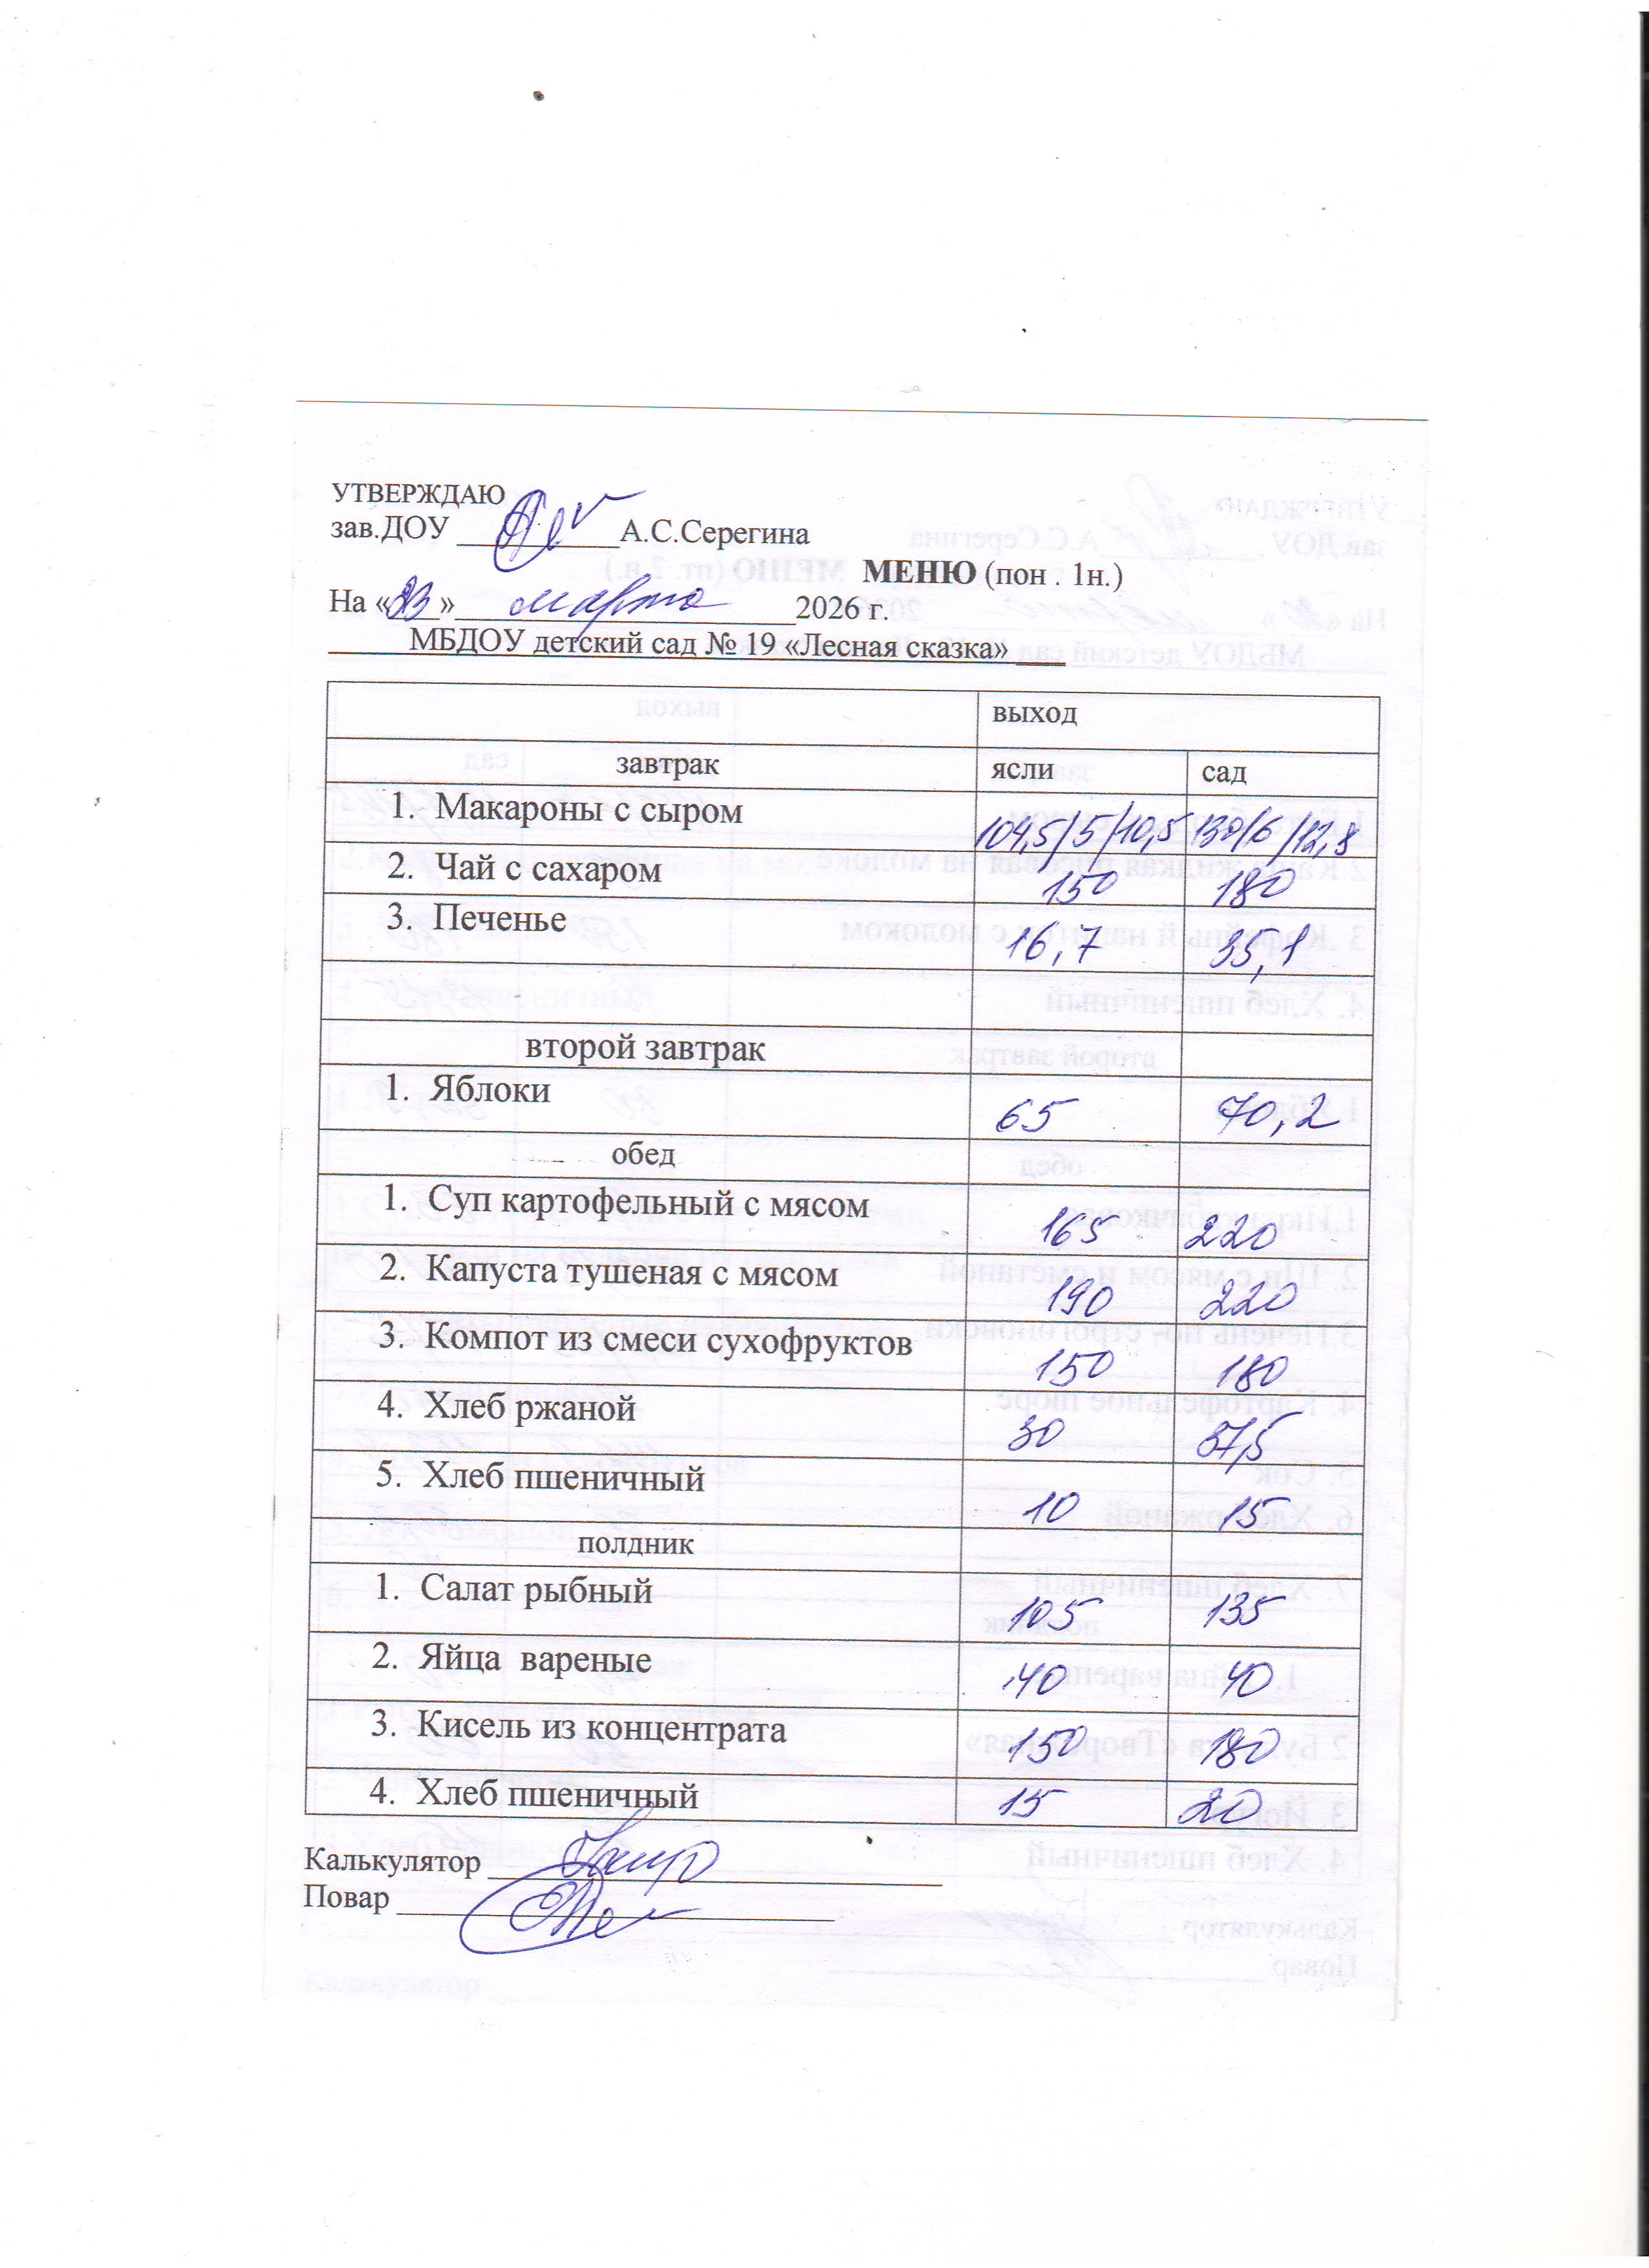 УТВЕРЖДАЮ
зав.ДОУ ___________А.С.Серегина
МЕНЮ (пон . 1н.)
На «23» марта 2026 г.
МБДОУ детский сад № 19 «Лесная сказка»
выход
завтрак ясли сад
1. Макароны с сыром 104,5/5/10,5 130/6/12,8
2. Чай с сахаром 150 180
3. Печенье 16,7 35,1
второй завтрак
1. Яблоки 65 70,2
обед
1. Суп картофельный с мясом 165 220
2. Капуста тушеная с мясом 190 220
3. Компот из смеси сухофруктов 150 180
4. Хлеб ржаной 30 37,5
5. Хлеб пшеничный 10 15
полдник
1. Салат рыбный 105 135
2. Яйца вареные 40 40
3. Кисель из концентрата 150 180
4. Хлеб пшеничный 15 20
Калькулятор
Повар